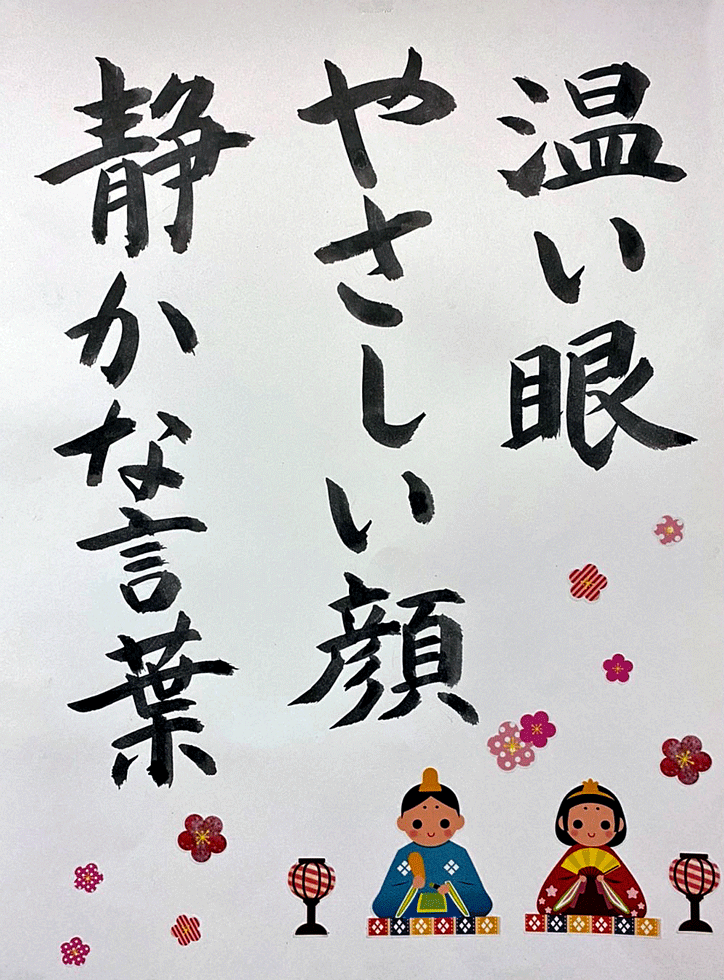 温い眼
やさしい顔
静かな言葉